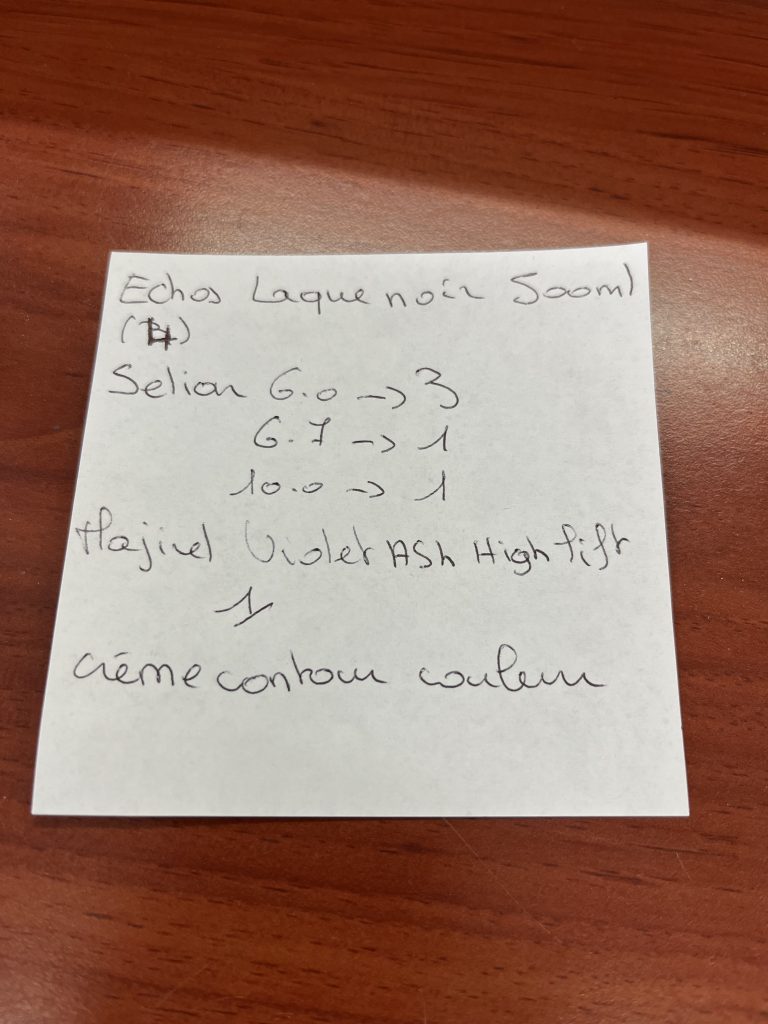 Echos Laque noir 500ml
(4)
Seliar 6.0 -> 3
6.7 -> 1
10.0 -> 1
Majirel Violet ASh High lift
1
crème contour couleur